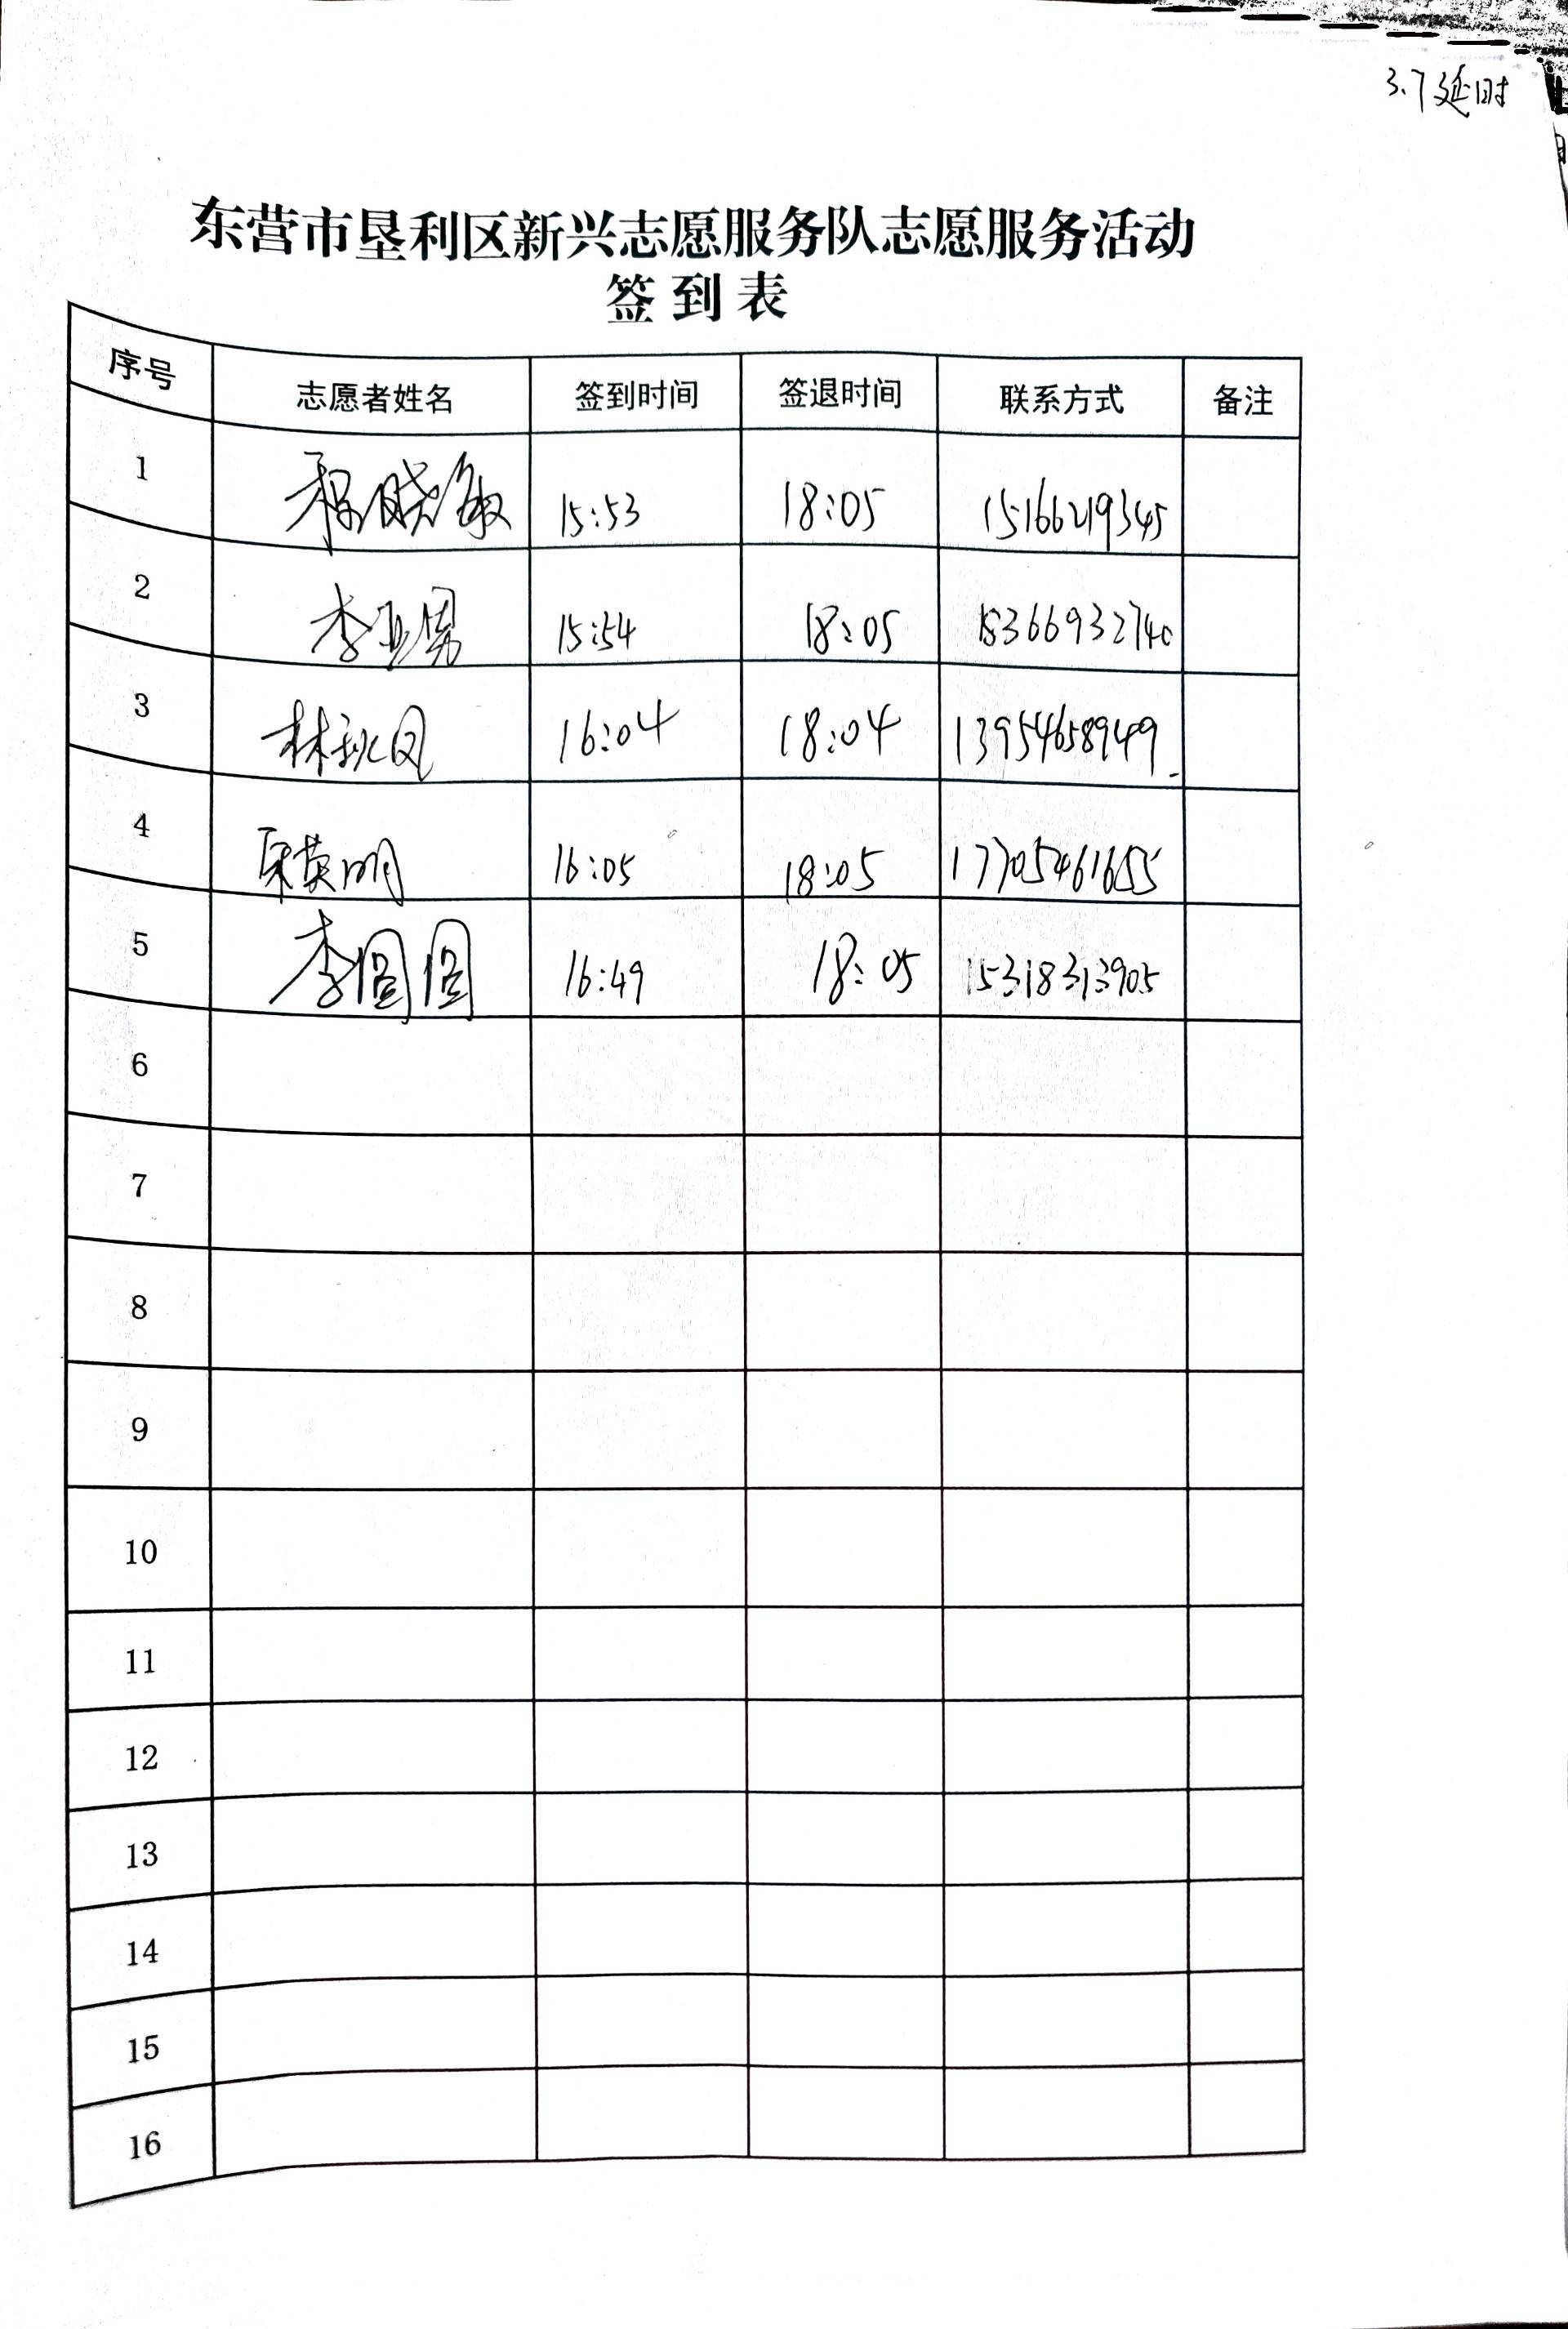 3.7延时
东营市垦利区新兴志愿服务队志愿服务活动
签到表
序号 志愿者姓名 签到时间 签退时间 联系方式 备注
1 程晓敏 15:53 18:05 15166219345
2 李亚男 15:54 18:05 18366932740
3 林秋凤 16:04 18:04 13954658949
4 英明 16:05 18:05 17705461655
5 李圆圆 16:49 18:05 15318313905
6
7
8
9
10
11
12
13
14
15
16